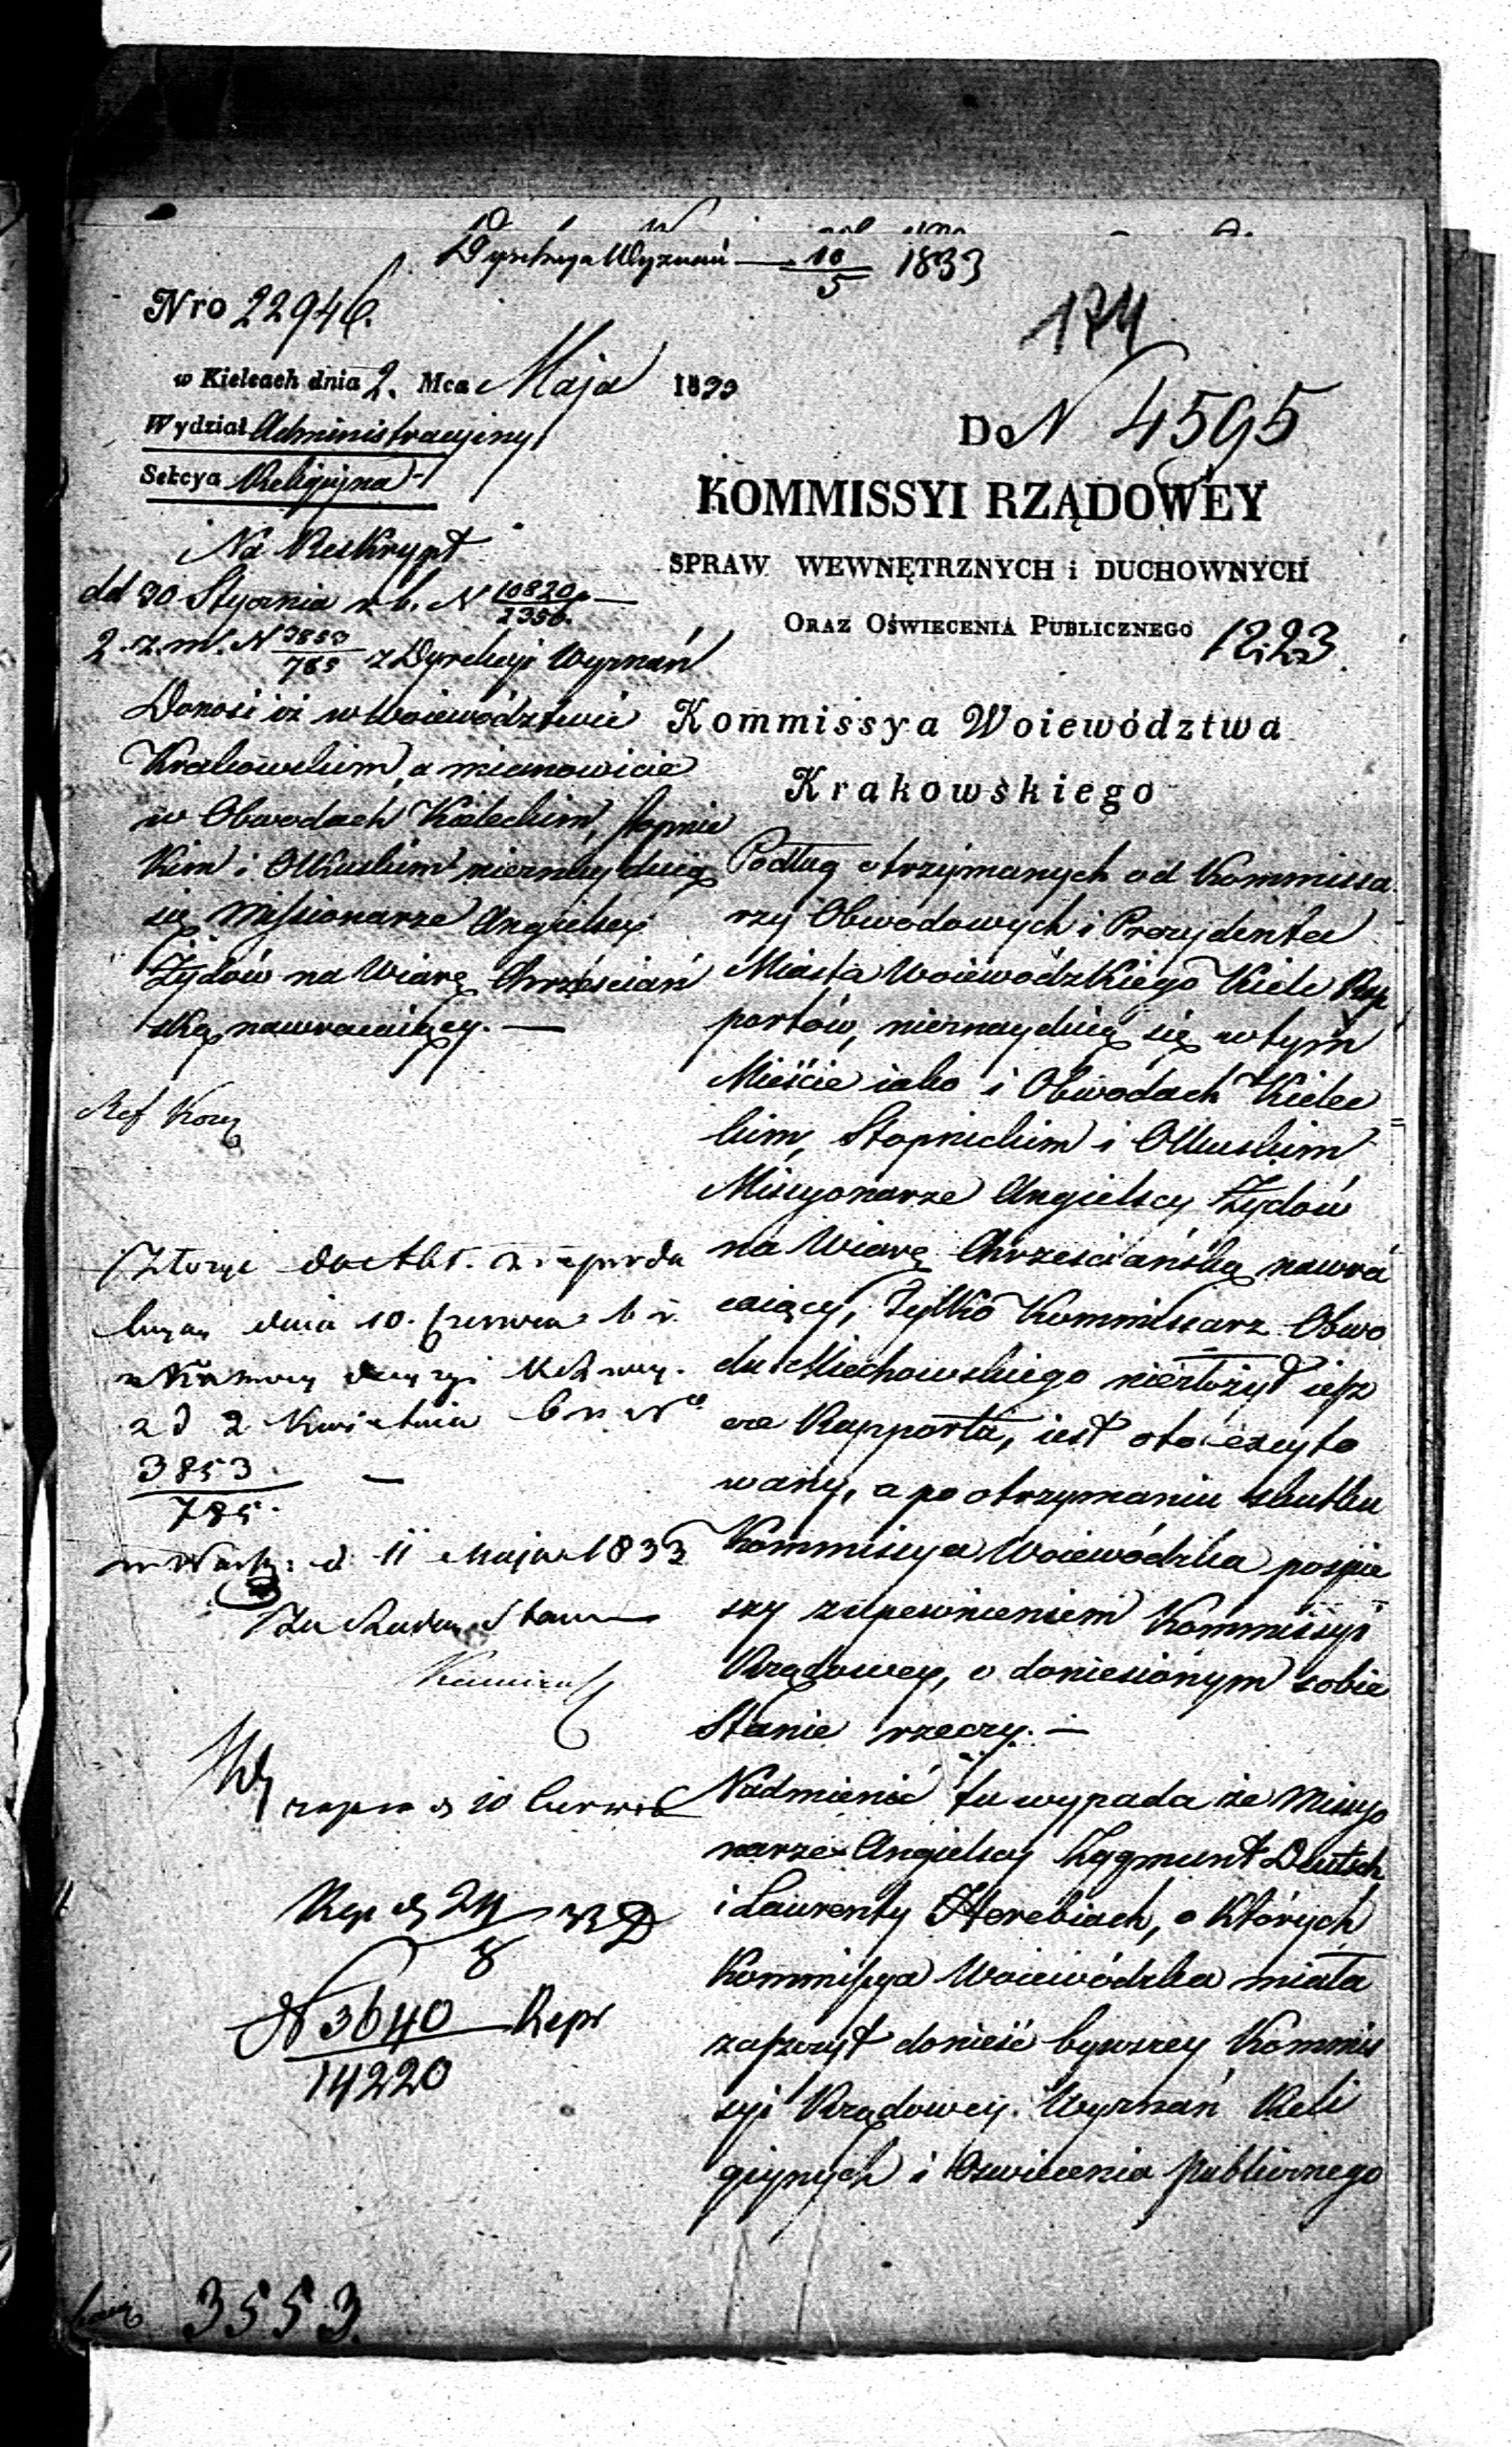 Dyrekcya Wyznań 10/5 1833
174
Nro 22946.
w Kielcach dnia 2. Mca Maja 1833
Wydział Administracyiny
Sekcya Religijna
Do N 4595
KOMMISSYI RZĄDOWEY
SPRAW WEWNĘTRZNYCH i DUCHOWNYCH
ORAZ OŚWIECENIA PUBLICZNEGO
12223
Na Reskrypt
dd 30 Stycznia r. b. N 10820/2350.
2. z. m. N 3853/785 z Dyrekcyi Wyznań
Donosi iż w Woiewództwie
Krakowskim, a mianowicie
w Obwodach Kieleckim, Stopnic
kim i Olkuskim nieznayduią
się Missionarze Angielscy
Żydów na Wiarę Chrześciań
ską nawracaiący. —
Kommissya Woiewództwa
Krakowskiego
Podług otrzymanych od Kommissa
rzy Obwodowych i Prezydenta
Miasta Woiewódzkiego Kielc Rap
portów, nieznayduią się w tym
Mieście iako i Obwodach Kielec
kim, Stopnickim i Olkuskim
Missyonarze Angielscy Żydów
na Wiarę Chrześciańską nawra
caiący, Tylko Kommissarz Obwo
du Miechowskiego niezłożył iesz
cze Rapportu, iest oto excyto
wany, a po otrzymaniu skutku
Kommissya Woiewódzka pospie
szy z upewnieniem Kommissyi
Rządowey, o doniesionym sobie
Stanie rzeczy. —
Nadmienić tu wypada że Missyo
narze Angielscy Zygmunt Deutsch
i Laurenty Herebiach, o których
Kommissya Woiewódzka miała
zaszczyt donieść bywszey Kommis
syi Rządowey Wyznań Reli
giynych i Oświecenia Publicznego
dnia 10. Czerwca b. r.
2 Kwietnia b. r. Nro
3853/785.
d. 11 Maja 1833
Radca Stanu
N 3640/14220 Repr
3553.